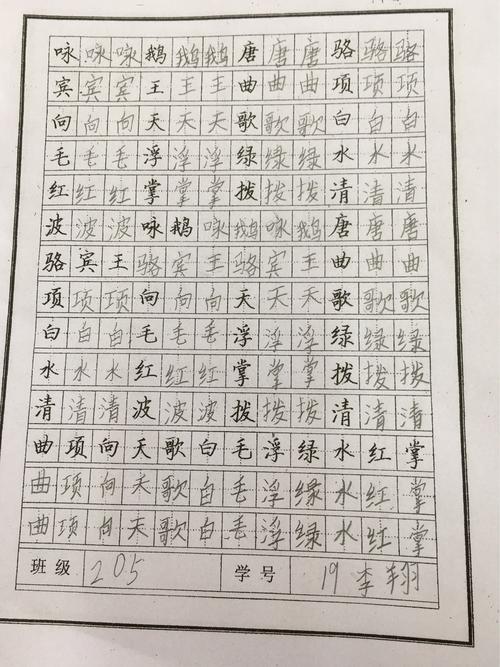 咏咏咏鹅鹅鹅唐唐唐骆骆骆
宾宾宾王王王曲曲曲项项项
向向向天天天歌歌歌白白白
毛毛毛浮浮浮绿绿绿水水水
红红红掌掌掌拨拨拨清清清
波波波咏鹅咏鹅咏鹅唐唐唐
骆宾王骆宾王骆宾王曲曲曲
项项项向向向天天天歌歌歌
白白白毛毛毛浮浮浮绿绿绿
水水水红红红掌掌掌拨拨拨
清清清波波波拨拨拨清清清
曲项向天歌白毛浮绿水红掌
曲项向天歌白毛浮绿水红掌
曲项向天歌白毛浮绿水红掌
班级 205 学号 19 李翔